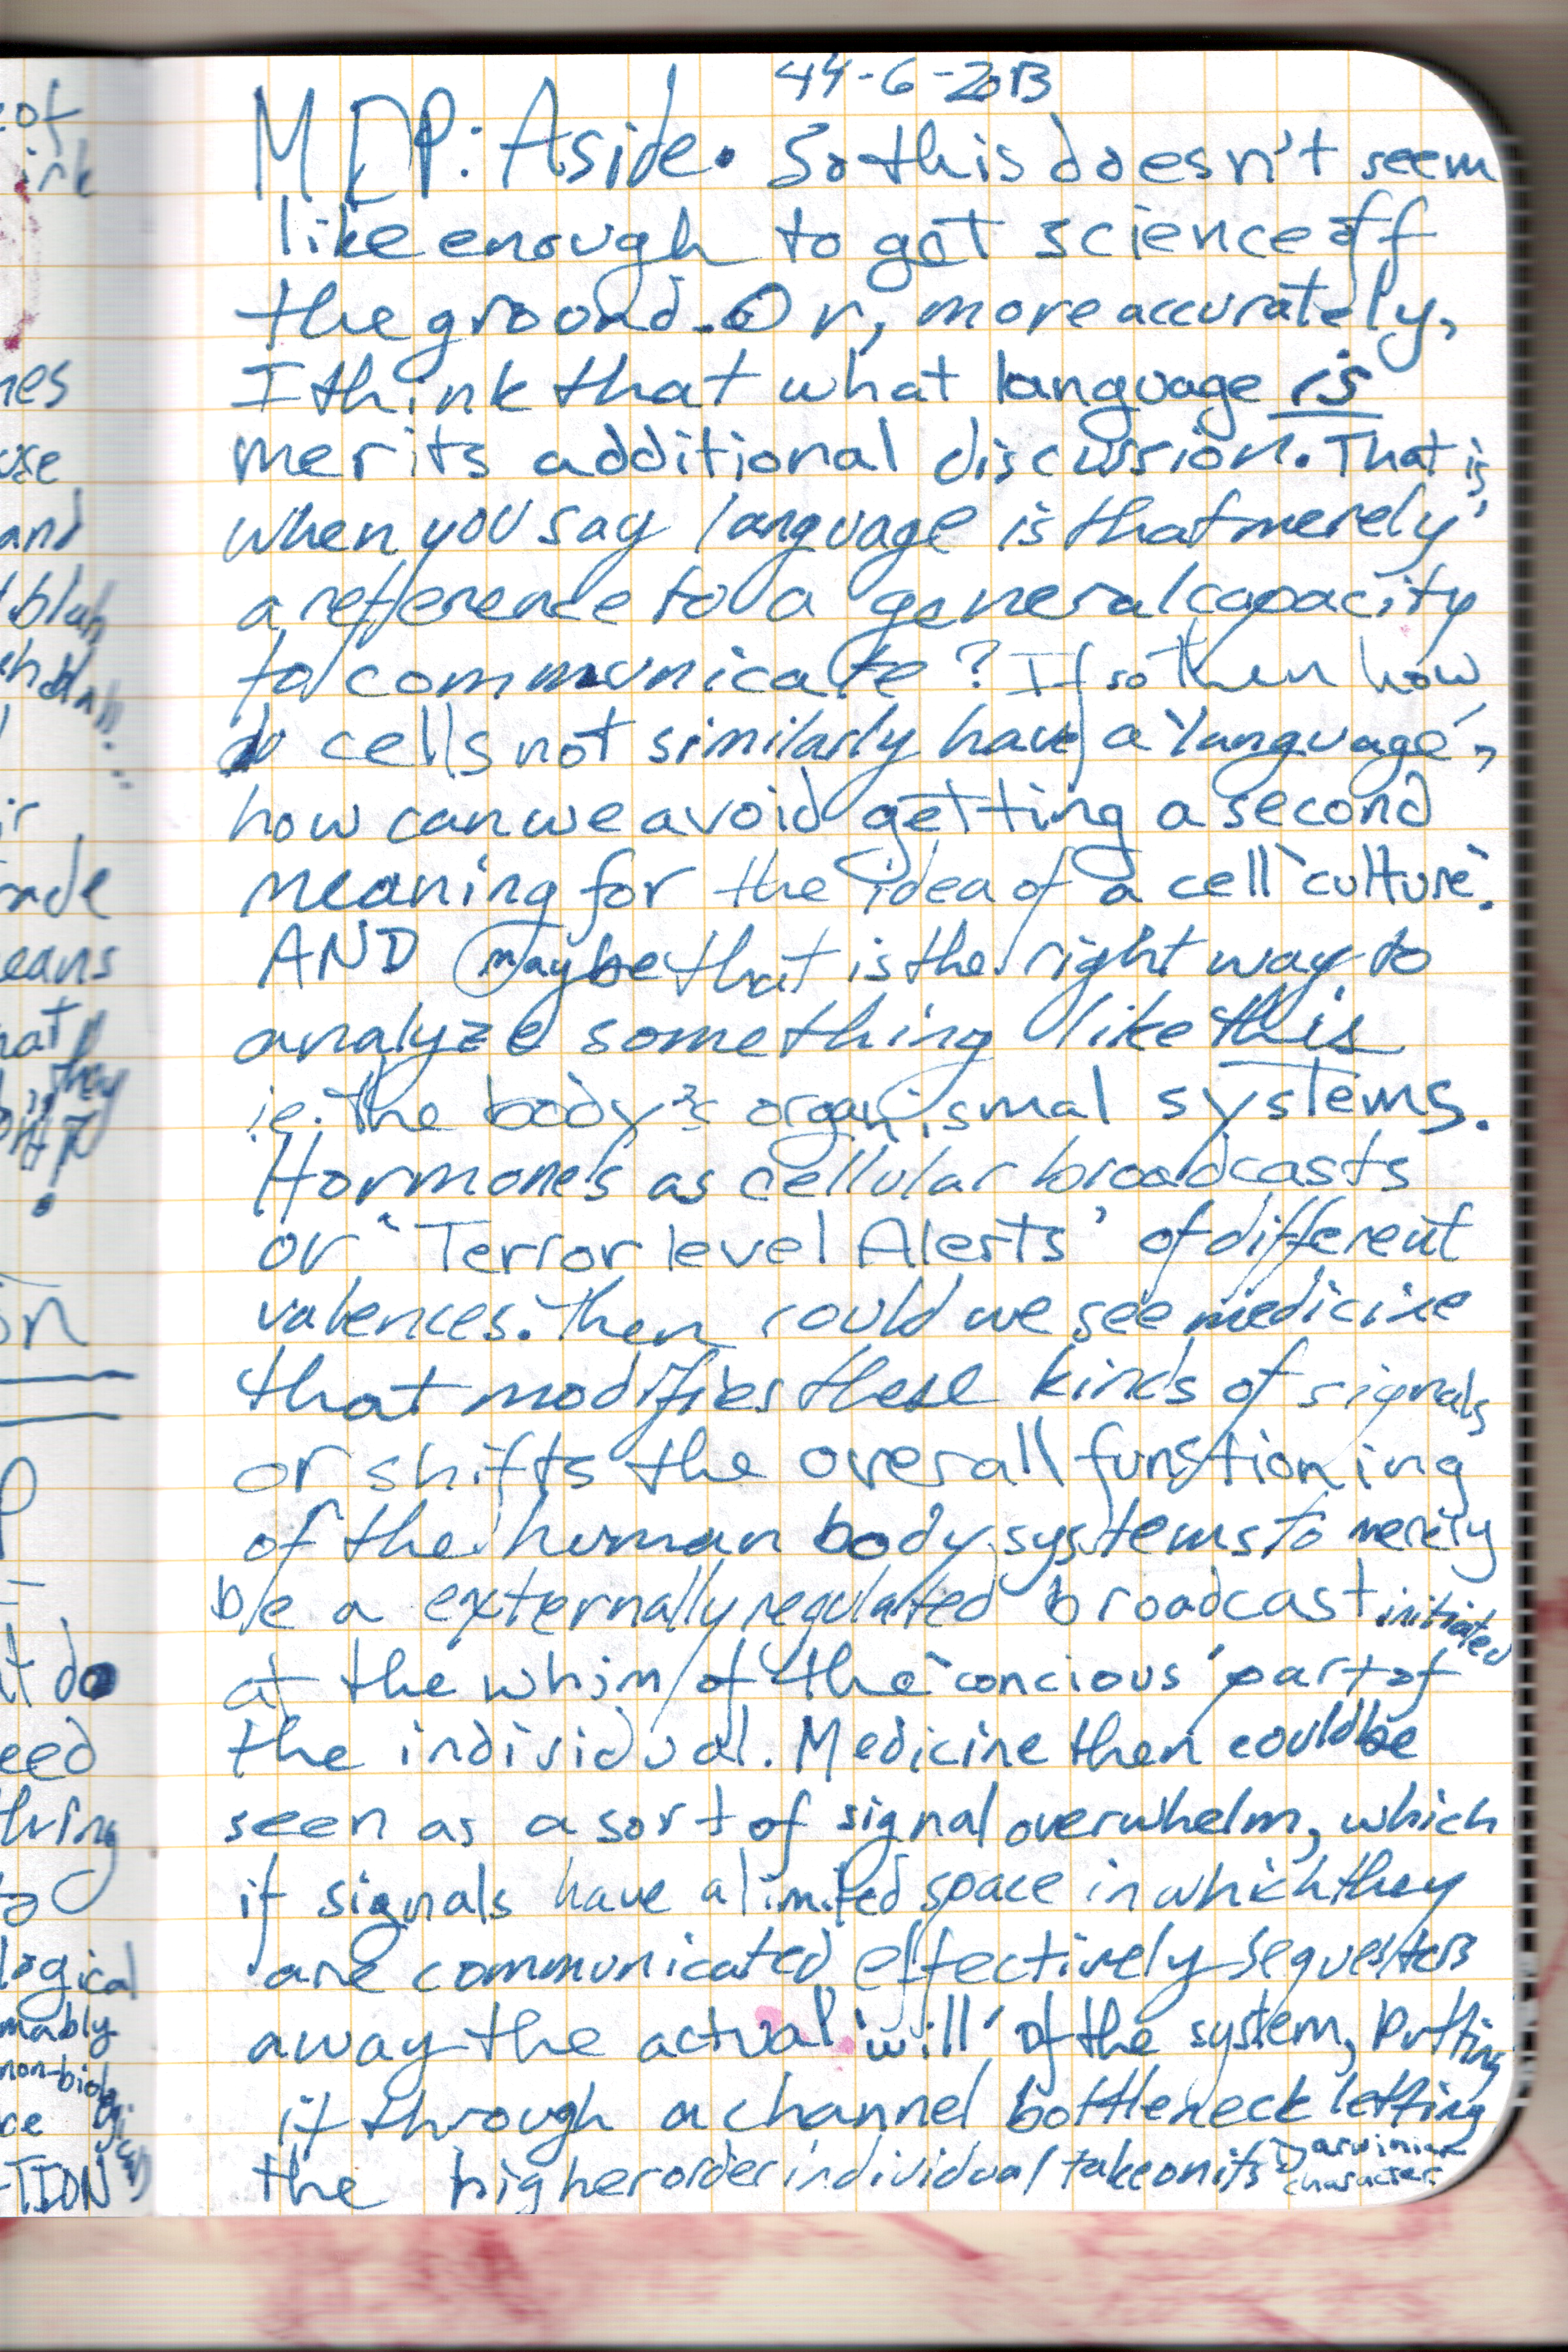 44-6-2013
MEP: Aside. So this doesn't seem
like enough to get science off
the ground. Or, more accurately,
I think that what language is
merits additional discussion. That is,
when you say language is that merely
a reference to a general capacity
to communicate? If so then how
do cells not similarly have a 'language',
how can we avoid getting a second
meaning for the idea of a cell 'culture'.
AND maybe that is the right way to
analyze something like this
ie. the body's organismal systems.
Hormones as cellular broadcasts
or 'Terror level Alerts' of different
valences. Then could we see medicine
that modifies these kinds of signals
or shifts the overall functioning
of the human body systems to merely
be a externally regulated broadcast initiated
at the whim of the 'concious' part of
the individual. Medicine then could be
seen as a sort of signal overwhelm, which
if signals have a limited space in which they
are communicated effectively sequesters
away the actual 'will' of the system, putting
it through a channel bottleneck letting
the higher order individual take on its Darwinian character
of
ink
and
blah
eans
on
P
it do
eed
thing
logical
mably
non-biol
ce
TION